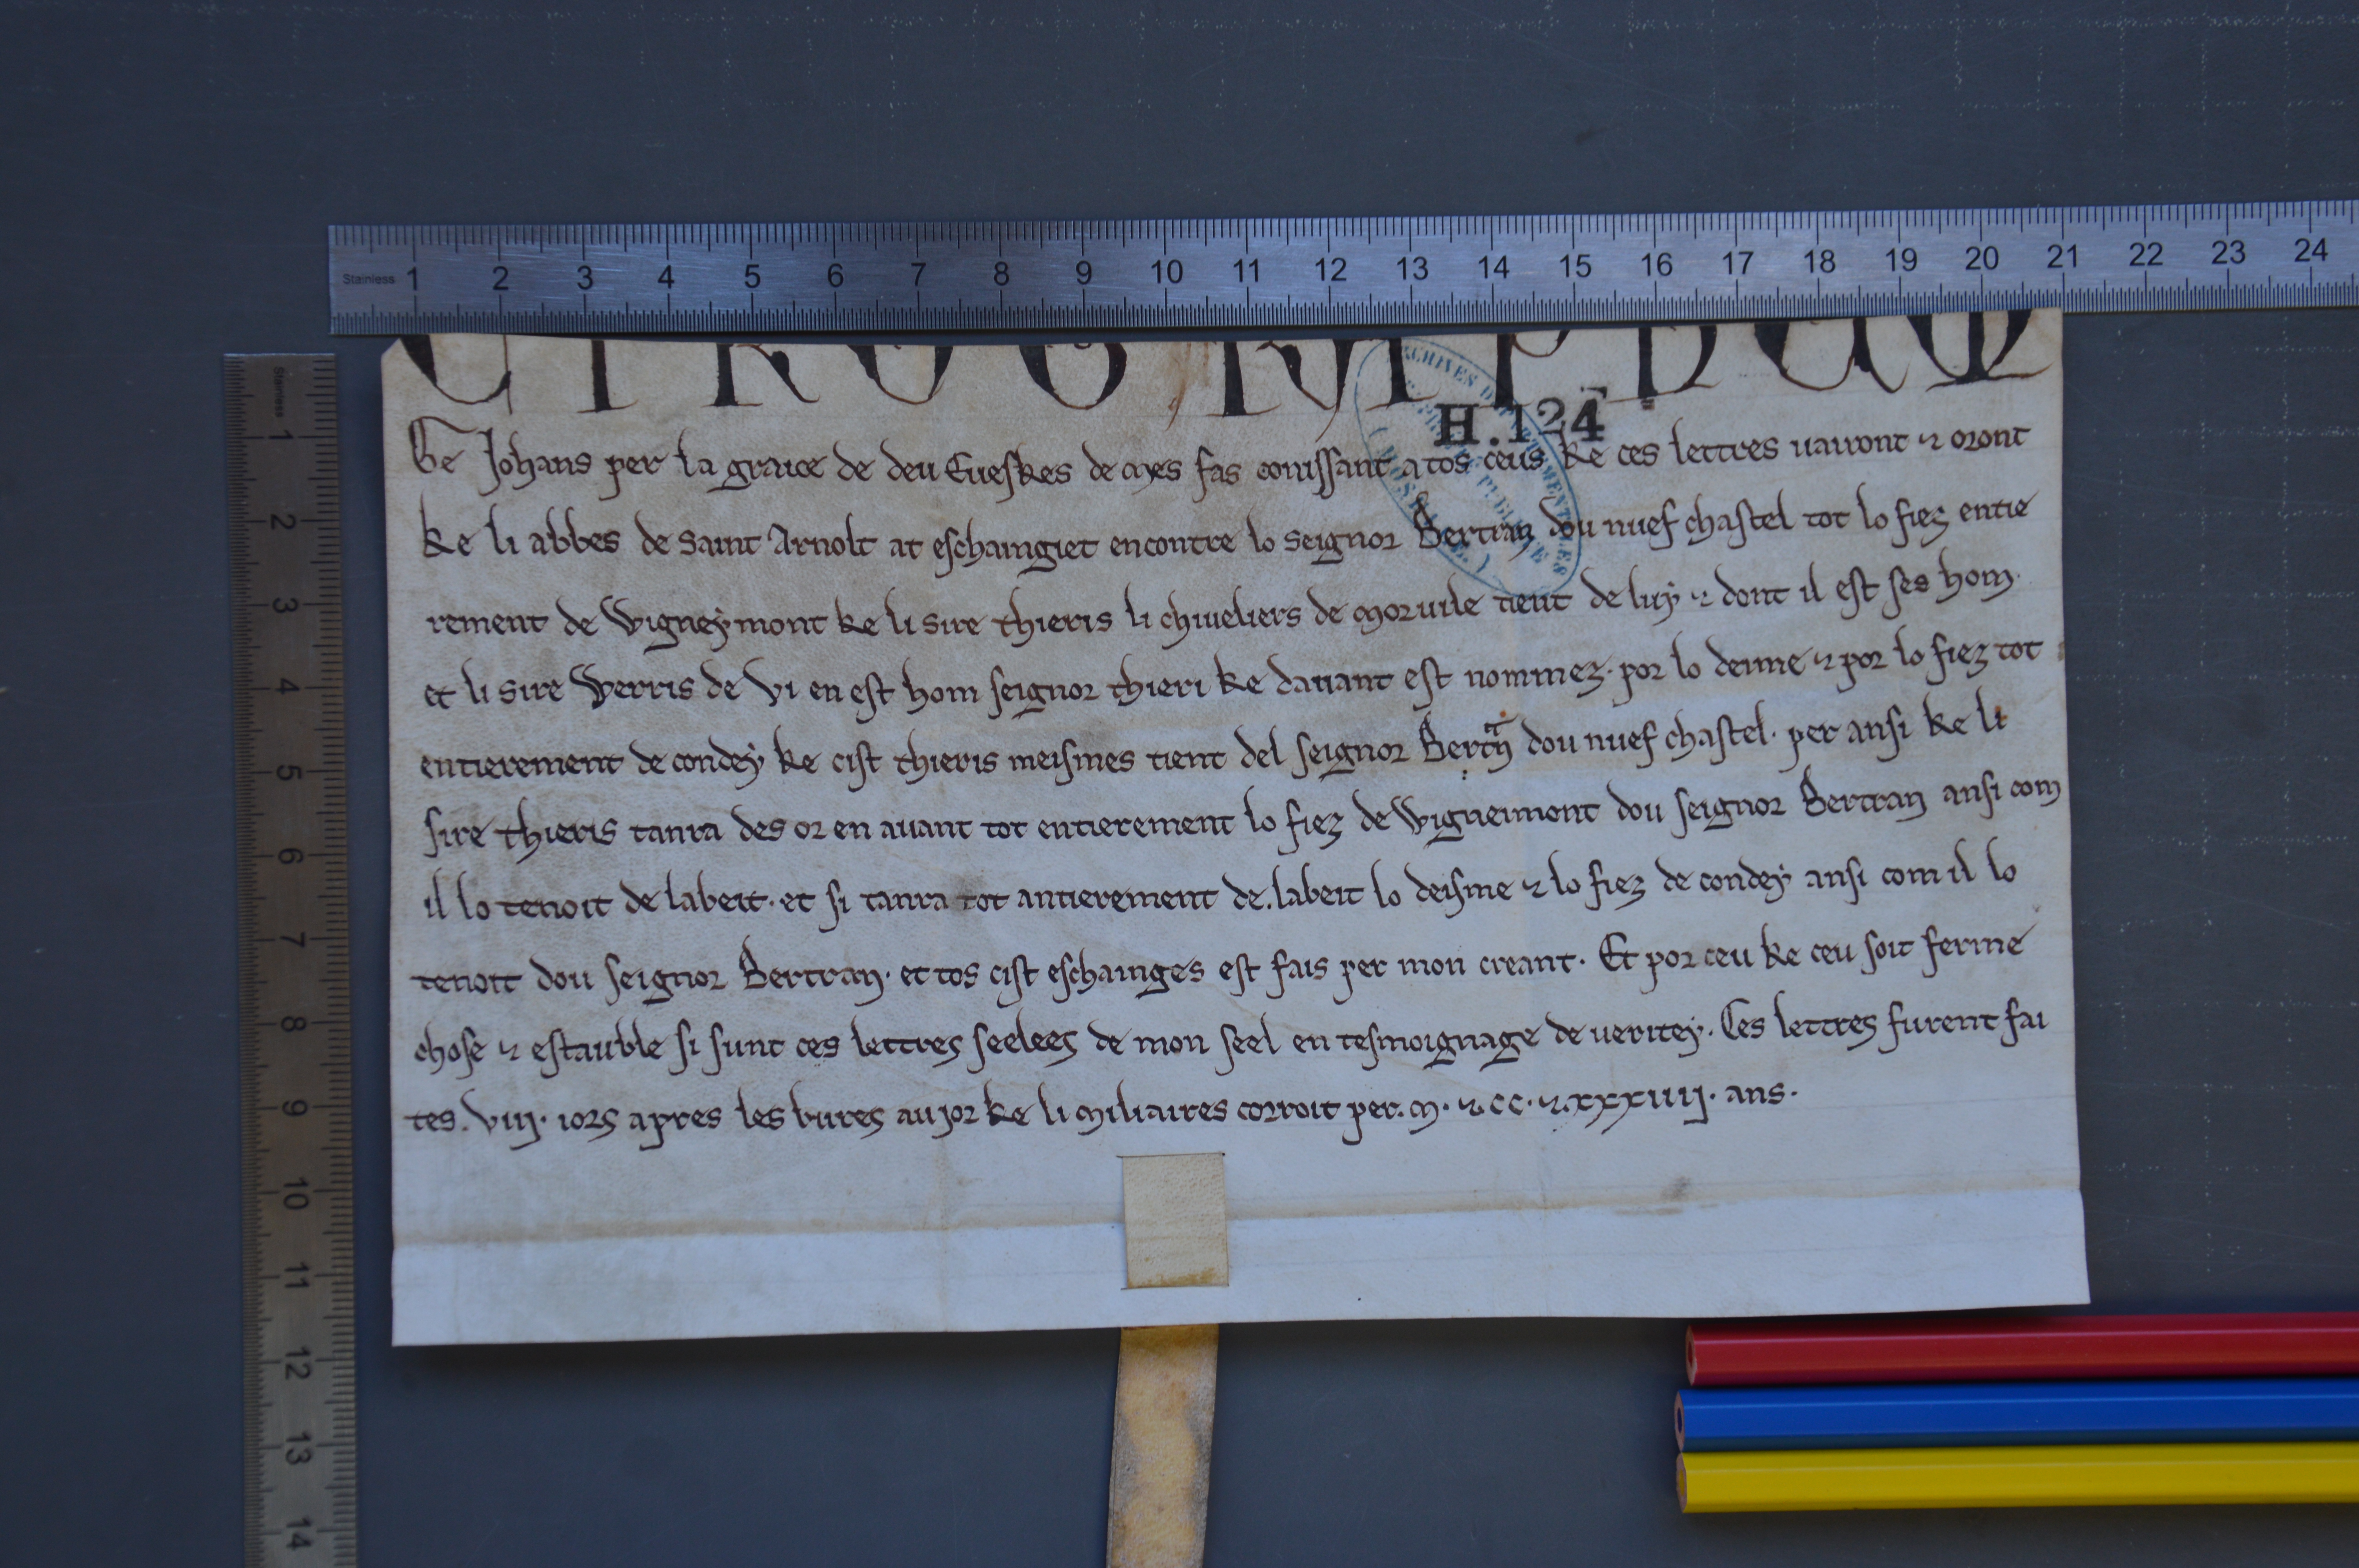 Stainless 1 2 3 4 5 6 7 8 9 10 11 12 13 14 15 16 17 18 19 20 21 22 23 24
Stainless 1 2 3 4 5 6 7 8 9 10 11 12 13 14
CIROG
H.124
ARCHIVES DÉPARTEMENTALES
Ge Johans per la graice de deu Eueskes de Mes fas conissant a tos ceus ke ces lettres uairont ⁊ oront
ke li abbes de saint Arnolt at eschaingiet encontre lo seignor Bertran dou nuef chastel tot lo fiez entie
rement de Wigneymont ke li sire thieris li chiueliers de Moruile tient de luy ⁊ dont il est ses hom·
et li sire Werris de Vi en est hom seignor thieri ke dauant est nommez· por lo deime ⁊ por lo fiez tot
entierement de condey ke cist thieris meismes tient del seignor Bertn̄ dou nuef chastel· per ansi ke li
sire thieris tanra des or en auant tot entierement lo fiez de Wigneimont dou seignor Bertran ansi com
il lo tenoit de labeit· et si tanra tot antierement de labeit lo deisme ⁊ lo fiez de condey ansi com il lo
tenoit dou seignor Bertran· et tos cist eschainges est fais per mon creant· Et por ceu ke ceu soit ferme
chose ⁊ estauble si sunt ces lettres seelees de mon seel en tesmoignage de ueritey. Ces lettres furent fai
tes. viij· iors apres les bures au jor ke li miliaires corroit per. M· ⁊. CC· ⁊. xxxiiij· ans·